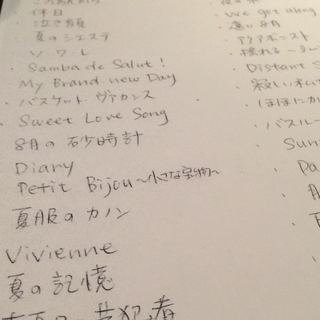 休日
泣き顔
夏のシエスタ
ソワレ
・Samba de Salut!
My Brand new Day
・バスケット ヴァカンス
・Sweet Love Song
8月の砂時計
Diary
Petit Bijou〜小さな宝物〜
夏服のカノン
Vivienne
夏の記憶
共犯者
・We get along
・遠い8月
・アクアボニスト
・揺れる
・Distant S
・寂しい
・ほほにか
・バスルー
Sun
Pa